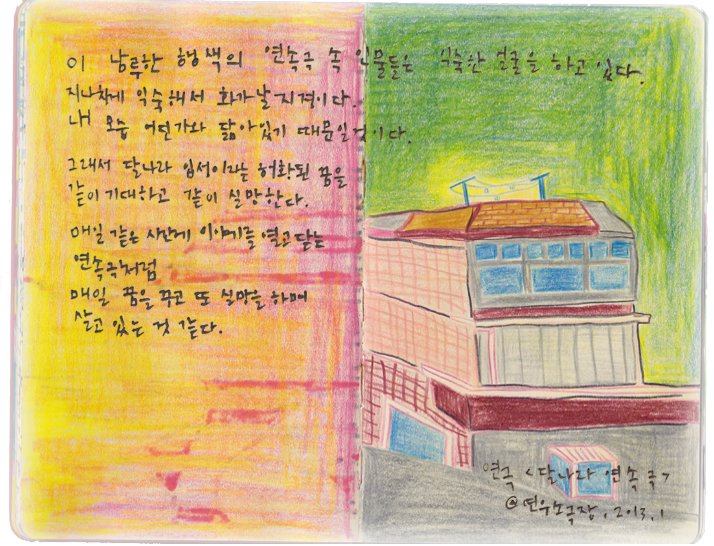 이 남루한 행색의 연속극 속 인물들은 익숙한 얼굴을 하고 있다.
지나치게 익숙해서 화가 날 지경이다.
내 모습 어딘가와 닮아있기 때문일 것이다.
그래서 달나라 입성이라는 허황된 꿈을
같이 기대하고 같이 실망한다.
매일 같은 시간에 이야기를 열고 닫는
연속극처럼
매일 꿈을 꾸고 또 실망을 하며
살고 있는 것 같다.
연극 <달나라 연속극>
@연우소극장, 2013, 1